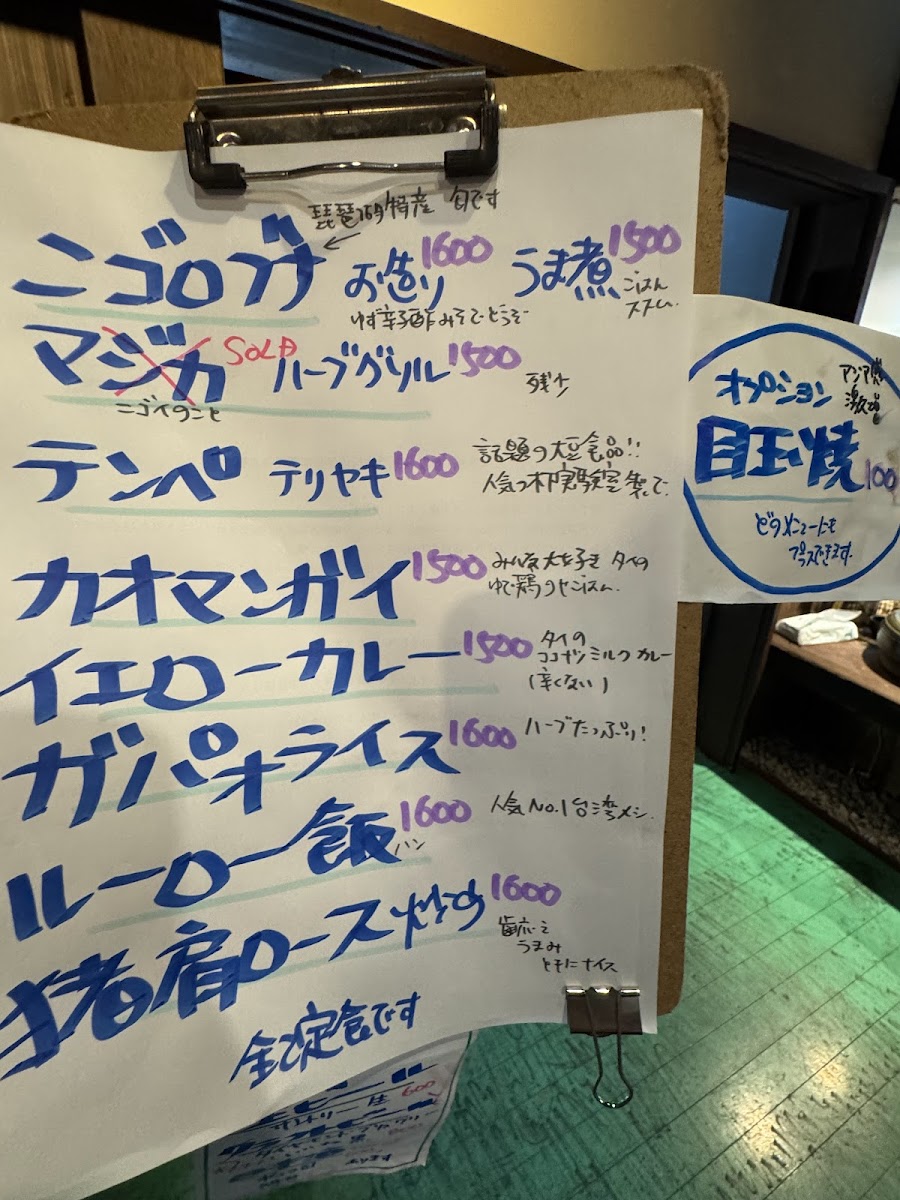 琵琶湖特産 旬です
ニゴロブナ お造り 1600 うま煮 1500
ゆず辛子酢みそでどうぞ
ごはん
ススム
マジカ SOLD ハーブグリル 1500 残少
ニゴイのこと
テンペ テリヤキ 1600 話題の大豆食品!!
カオマンガイ 1500 みんな大好き タイの
ゆで鶏のせごはん
イエローカレー 1500 タイの
ココナツミルクカレー
(辛くない)
ガパオライス 1600 ハーブたっぷり!
ルーロー飯 1600 人気No.1台湾メシ
ハン
猪肩ロース炒め 1600
歯応え
うまみ
ともにナイス
全て定食です
オプション
目玉焼 100
どのメニューにも
プラスできます
600